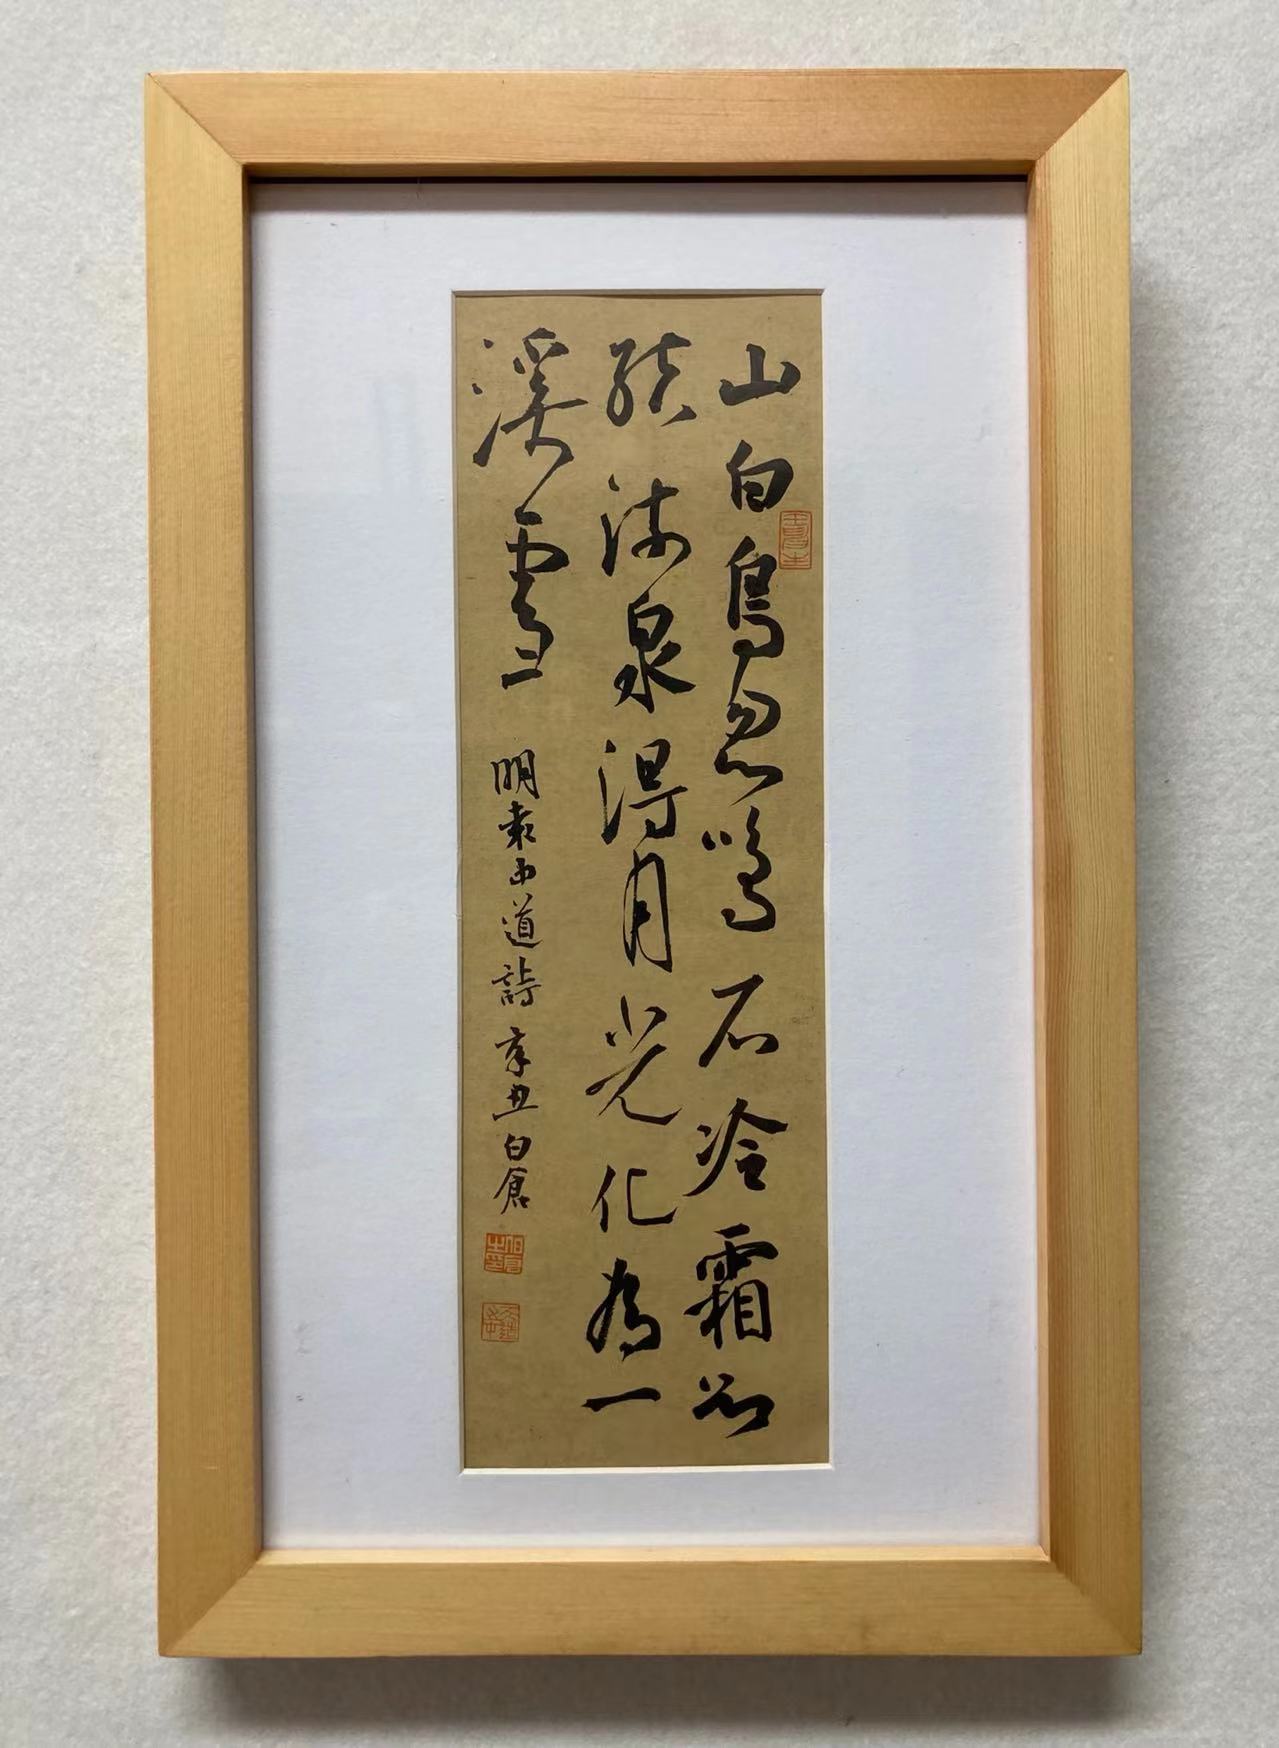 山白鳥忽鳴石冷霜欲
結流泉得月光化為一
溪雪 明袁中道詩 辛丑白倉